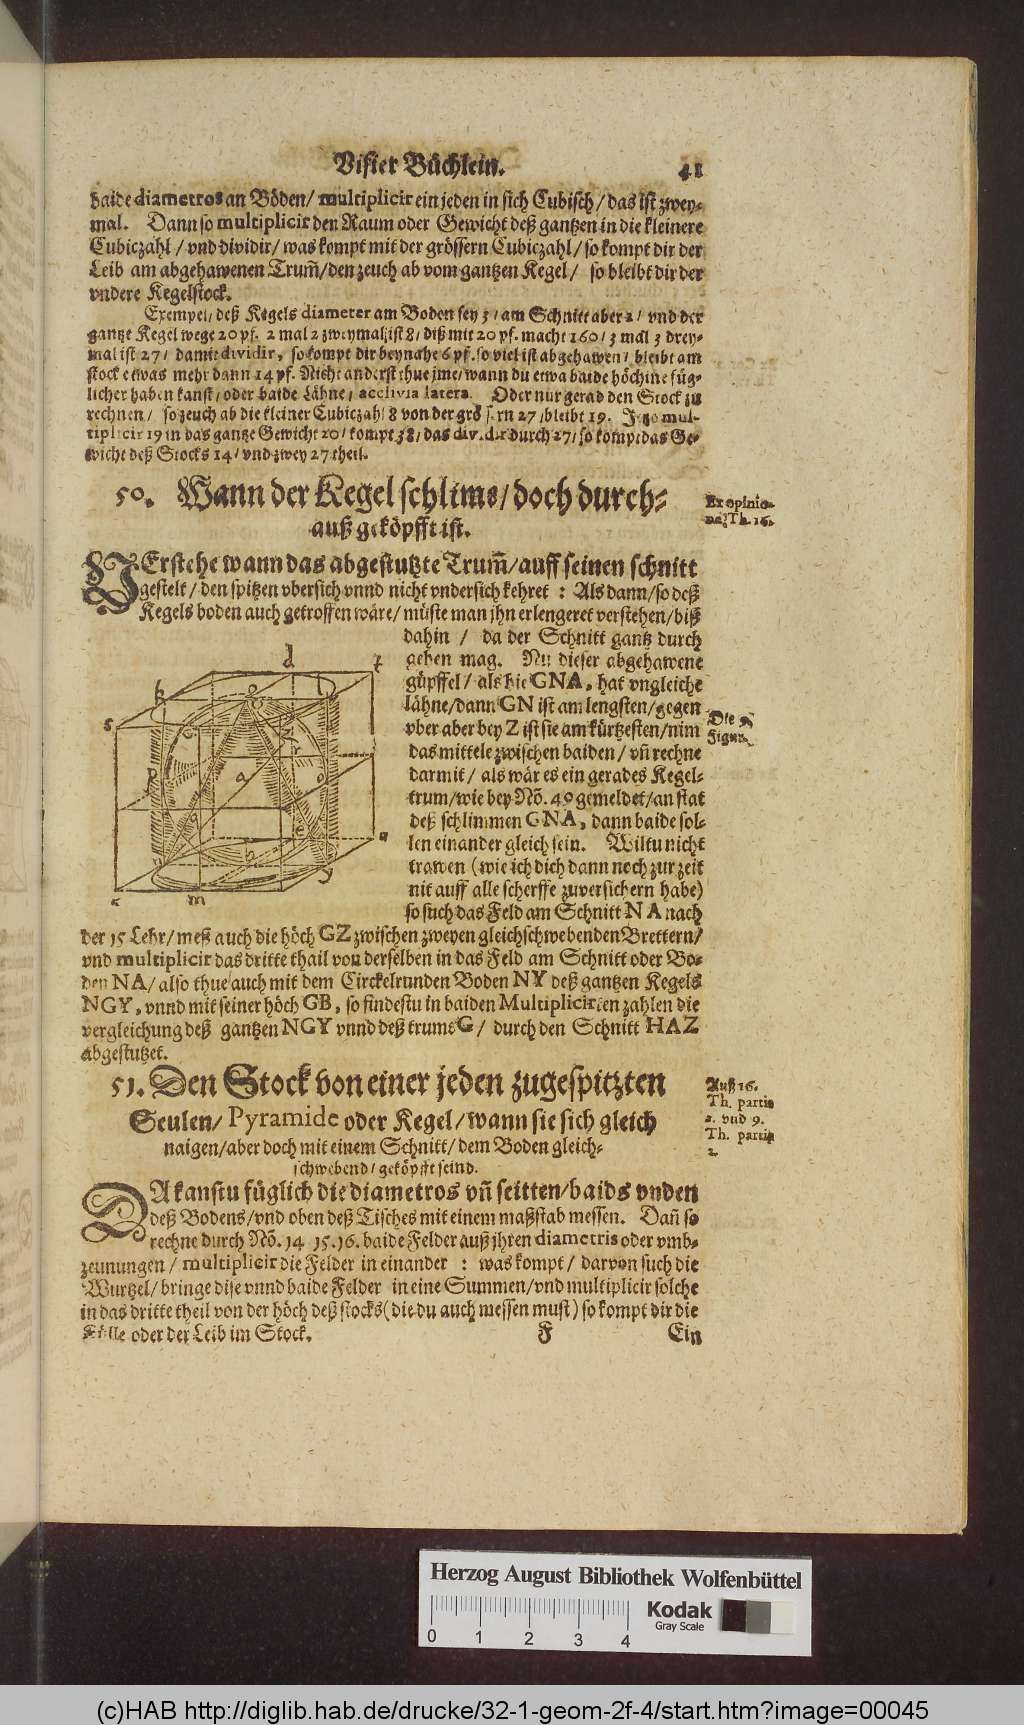 Visier Büchlein. 41
baide diametros an Böden/ multiplicir ein jeden in sich Cubisch/ das ist zwey-
mal. Dann so multiplicir den Raum oder Gewicht deß gantzen in die kleinere
Cubiczahl/ vnd dividir/ was kompt mit der grössern Cubiczahl/ so kompt dir der
Leib am abgehawenen Trum̃/ den zeuch ab vom gantzen Kegel/ so bleibt dir der
vndere Kegelstock.
Exempel/ deß Kegels diameter am Boden sey 3/ am Schnitt aber 2/ vnd der
gantze Kegel wege 20 pf. 2 mal 2 zweymal/ist 8/ diß mit 20 pf. macht 160/ 3 mal 3 drey-
mal ist 27/ damit dividir, so kompt dir beynahe 6 pf. so viel ist abgehawen/ bleibt am
stock etwas mehr dann 14 pf. Nicht anderst thue jme/ wann du etwa baide höchine füg-
licher haben kanst/ oder baide Lähne/ acclivia latera. Oder nur gerad den Stock zu
rechnen/ so zeuch ab die kleiner Cubiczahl 8 von der grössern 27/ bleibt 19. Jetzo mul-
tiplicir 19 in das gantze Gewicht 20/ kompt 38/ das dividir durch 27/ so kompt das Ge-
wicht deß Stocks 14/ vnd zwey 27 theil.
50. Wann der Kegel schlims/ doch durch-
auß geköpfft ist.
Ex opinio-
ne. Th. 16.
VErstehe wann das abgestutzte Trum̃/ auff seinen schnitt
gestelt/ den spitzen vbersich vnnd nicht vndersich kehret : Als dann/ so deß
Kegels boden auch getroffen wäre/ müste man jhn erlengeret verstehen/ biß
dahin / da der Schnitt gantz durch
gehen mag. Nu dieser abgehawene
güpffel/ als hie GNA, hat vngleiche
lähne/ dann GN ist am lengsten/ gegen
vber aber bey Z ist sie am kürtzesten/ nim
das mittele zwischen baiden/ vn̄ rechne
darmit/ als wär es ein gerades Kegel-
trum/ wie bey Nō. 49 gemeldet/ an stat
deß schlimmen GNA, dann baide sol-
len einander gleich sein. Wiltu nicht
trawen (wie ich dich dann noch zur zeit
nit auff alle scherffe zuversichern habe)
so such das Feld am Schnitt NA nach
Die 9.
Figur.
d
z
k
s
o
l
p
a
o
q
e
a
b
y
c
m
der 15 Lehr/ meß auch die höch GZ zwischen zweyen gleichschwebenden Brettern/
vnd multiplicir das dritte thail von derselben in das Feld am Schnitt oder Bo-
den NA/ also thue auch mit dem Circkelrunden Boden NY deß gantzen Kegels
NGY, vnnd mit seiner höch GB, so findestu in baiden Multiplicirten zahlen die
vergleichung deß gantzen NGY vnnd deß trums G/ durch den Schnitt HAZ
abgestutzet.
51. Den Stock von einer jeden zugespitzten
Seulen/ Pyramide oder Kegel/ wann sie sich gleich
naigen/ aber doch mit einem Schnitt/ dem Boden gleich-
schwebend/ geköpfft seind.
Auß 16.
Th. partis
2. vnd 9.
Th. partis
2.
DA kanstu füglich die diametros vn̄ seitten/ baids vnden
deß Bodens/ vnd oben deß Tisches mit einem maßstab messen. Dan̄ so
rechne durch Nō. 14 15. 16. baide Felder auß jhren diametris oder vmb-
zeunungen/ multiplicir die Felder in einander : was kompt/ darvon such die
Wurtzel/ bringe dise vnnd baide Felder in eine Summen/ vnd multiplicir solche
in das dritte theil von der höch deß stocks (die du auch messen must) so kompt dir die
Fülle oder der Leib im Stock.
F Ein
Herzog August Bibliothek Wolfenbüttel
0 1 2 3 4
Kodak
Gray Scale
(c)HAB http://diglib.hab.de/drucke/32-1-geom-2f-4/start.htm?image=00045